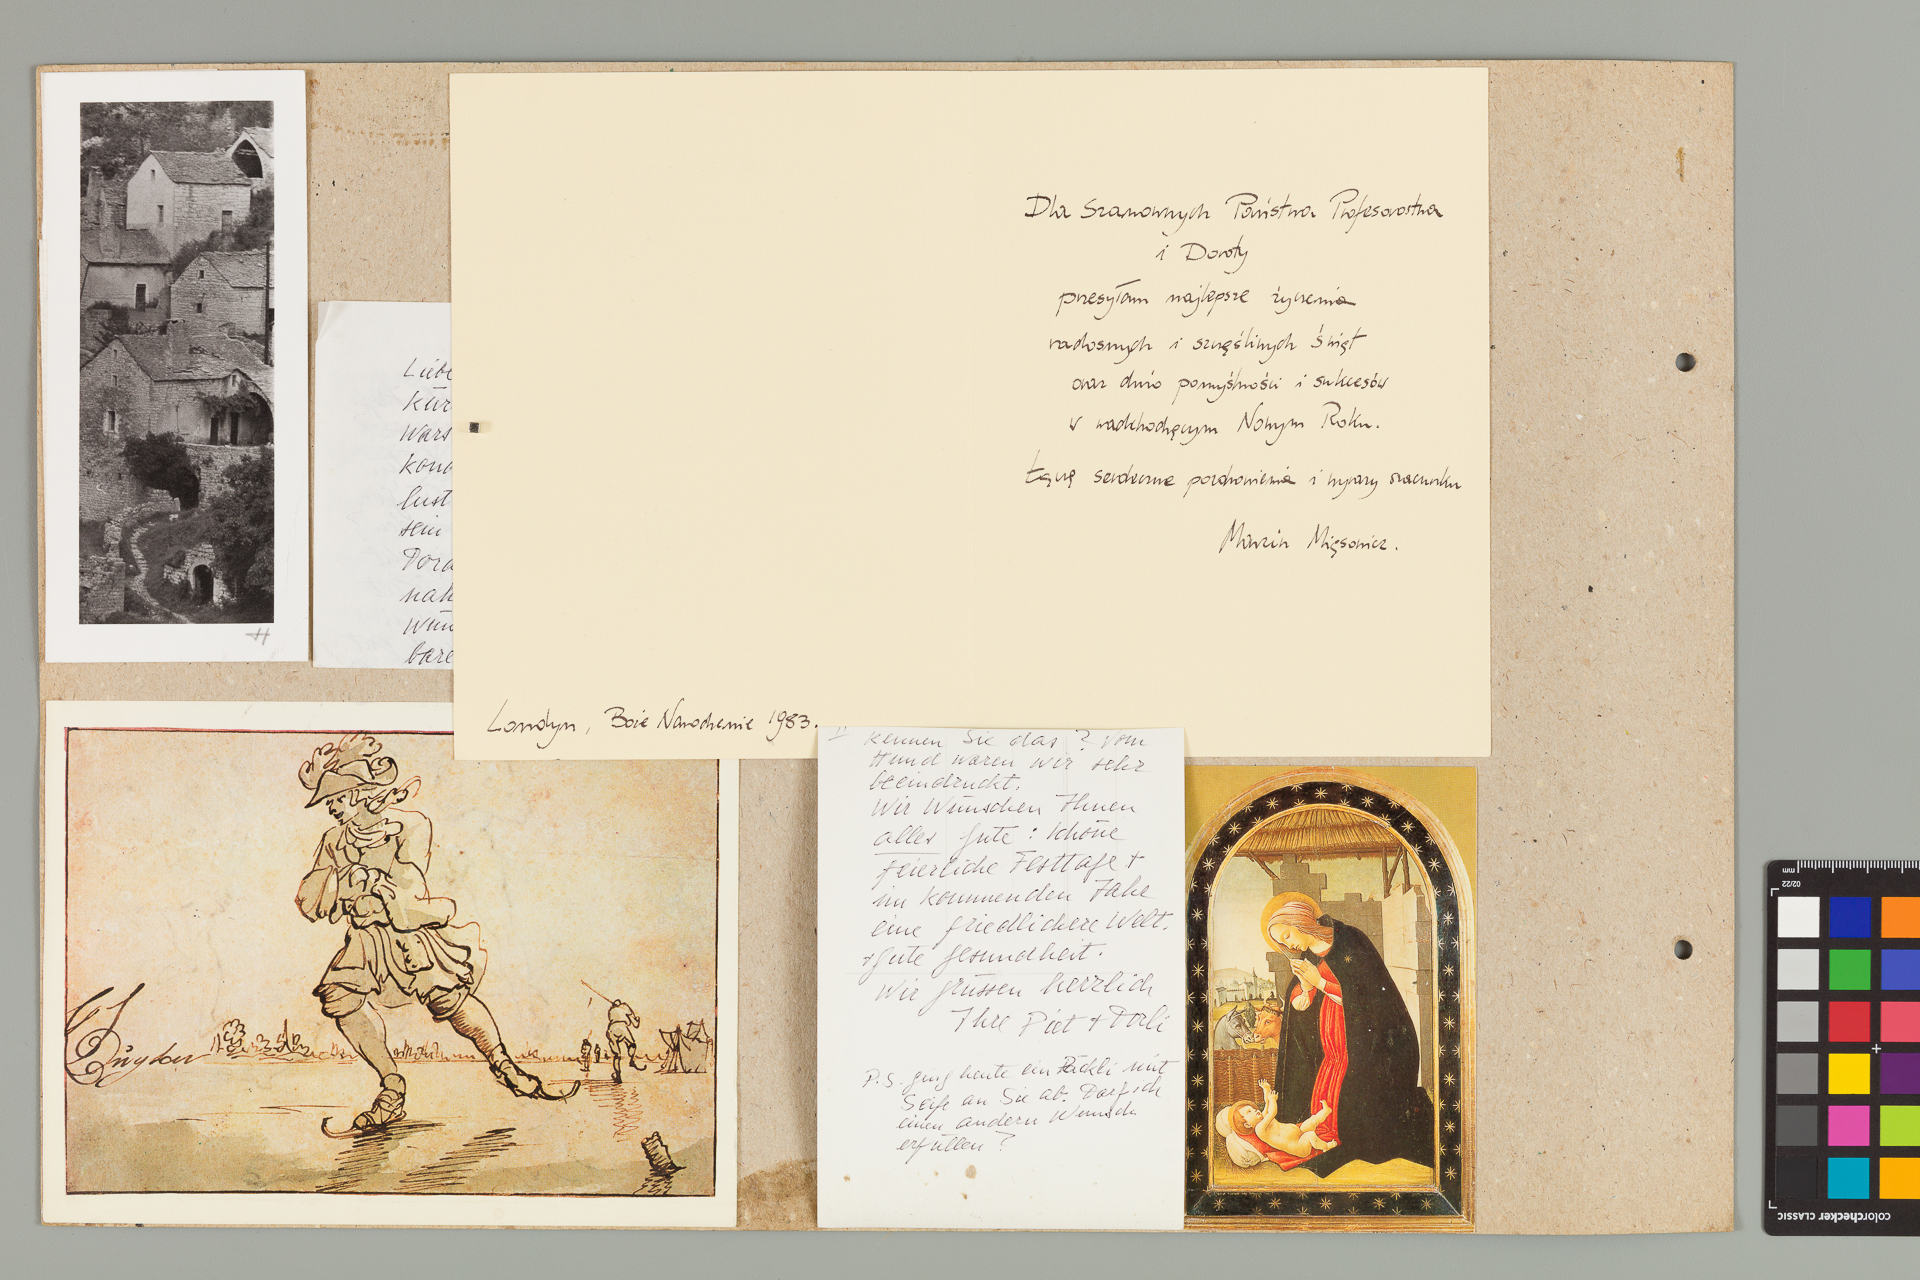 Dla Szanownych Państwa Profesorostwa
i Doroty
przesyłam najlepsze życzenia
radosnych i szczęśliwych Świąt
oraz dużo pomyślności i sukcesów
w nadchodzącym Nowym Roku.
Łączę serdeczne pozdrowienia i wyrazy szacunku
Marcin Mięsowicz.
Londyn, Boże Narodzenie 1983.
Liebe
Kür
Wars
kon
lust
sein
Pora
nah
Wün
bare
kennen Sie das? Vom
Hund waren wir sehr
beeindruckt.
Wir Wünschen Ihnen
alles gute: schöne
feierliche Festtage +
im kommenden Jahe
eine friedlichere Welt.
+ gute gesundheit.
Wir grüssen herzlich
Ihre Piet +
P.S. ging heute ein Päckli mit
Seife an Sie ab. Darf ich
einen andern Wunsch
erfüllen?
H
mm
02/22
colorchecker CLASSIC